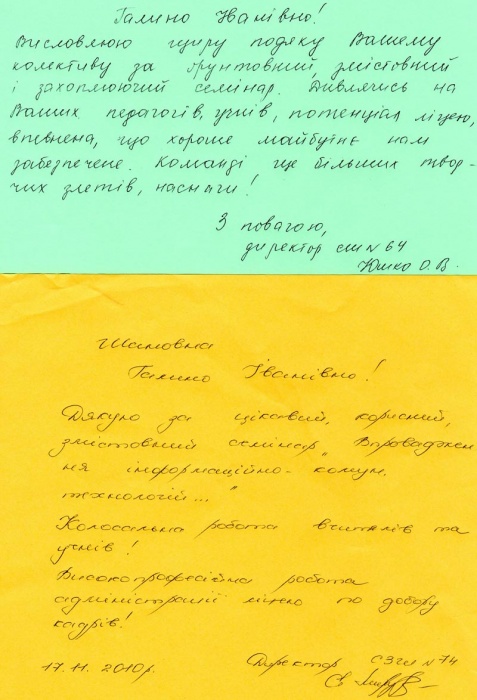 Галино Іванівно!
Висловлюю щиру подяку Вашему
колективу за ґрунтовний, змістовний
і захоплюючий семінар. Дивлячись на
Ваших педагогів, учнів, потенціал ліцею,
впевнена, що хороше майбутнє нам
забезпечене. Команді ще більших твор-
чих злетів, наснаги!
З повагою,
директор сш № 64
Юшко О. В.
Шановна
Галино Іванівно!
Дякую за цікавий, корисний,
змістовний семінар „Впроваджен
ня інформаційно-комун.
технологій..."
Колосальна робота вчителів та
учнів!
Високопрофесійна робота
адміністрації ліцею по добору
кадрів!
17.11.2010р. Директор СЗШ №74